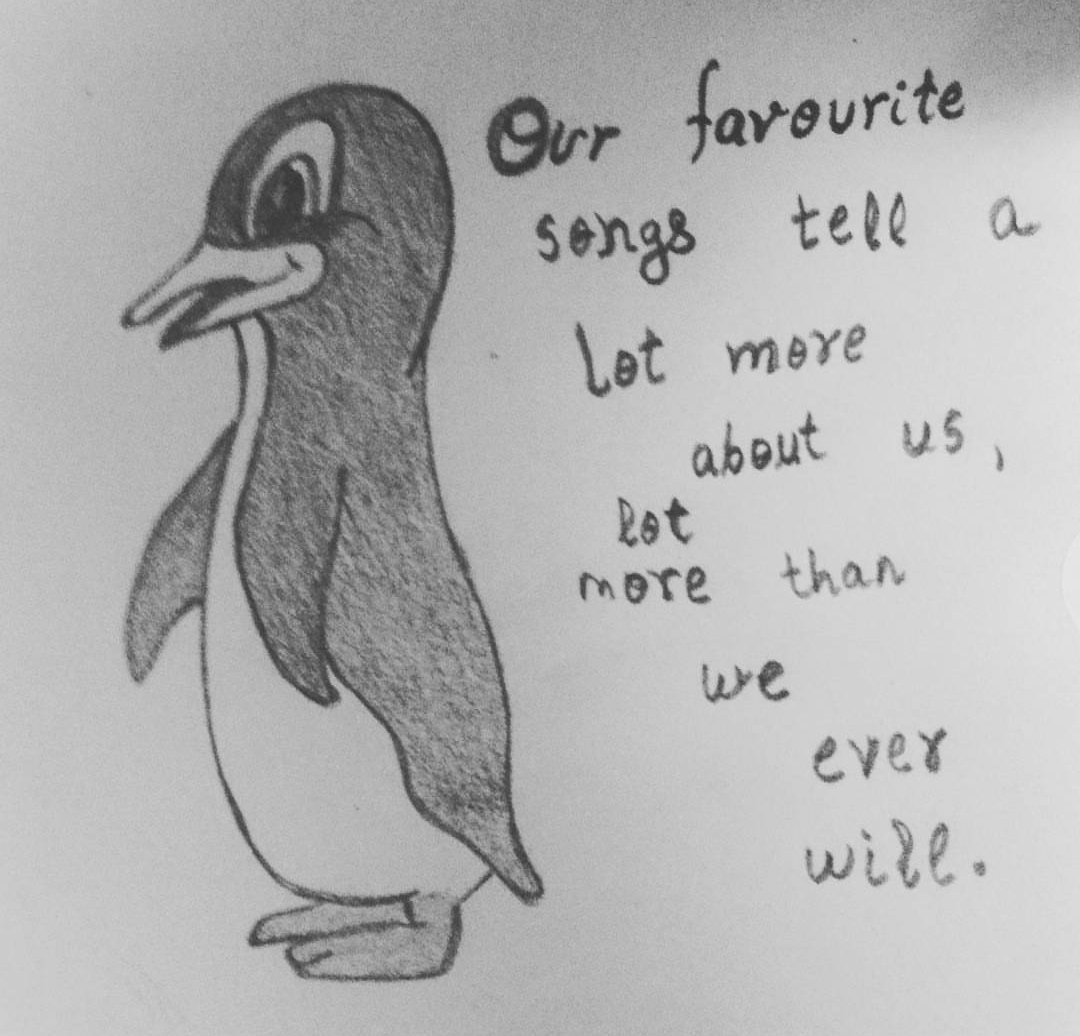 Our favourite
songs tell a
lot more
about us,
lot
more than
we
ever
will.